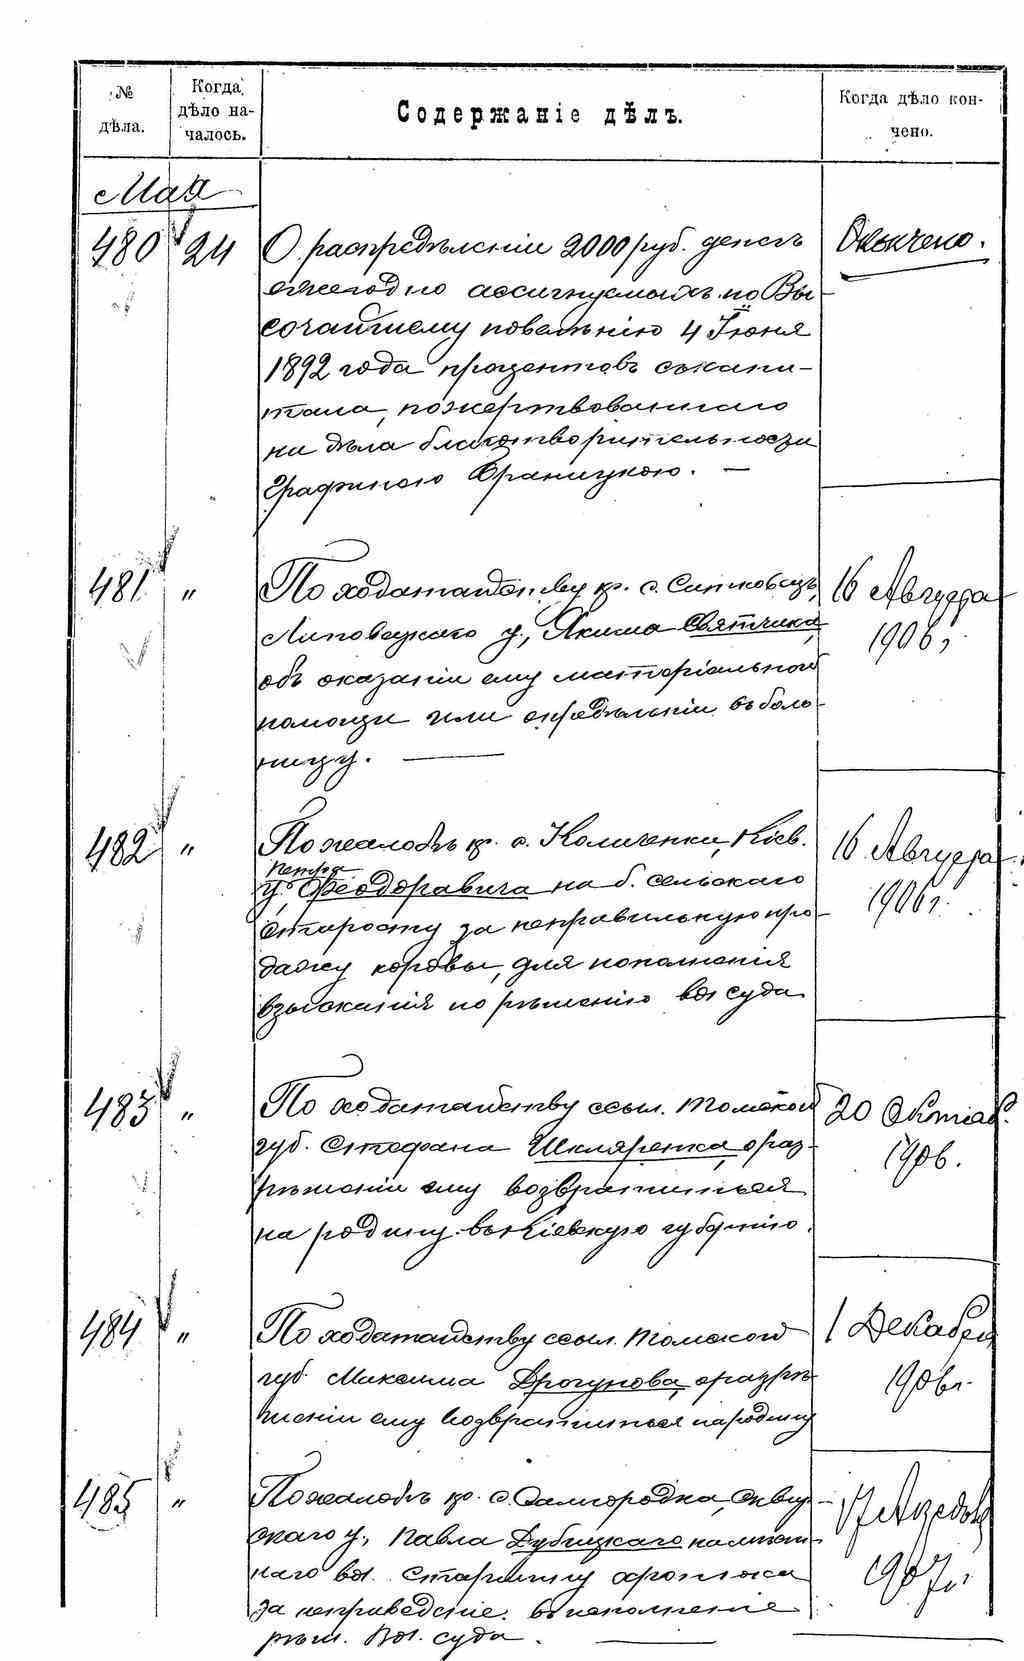 № дѣла.
Когда дѣло на-
чалось.
Содержаніе дѣлъ.
Когда дѣло кон-
чено.
Мая
480 24 О распредѣленіи 2000 руб. денегъ
ежегодно ассигнуемыхъ по Вы-
сочайшему повелѣнію 4 Іюня
1892 года процентовъ съ капи-
тала, пожертвованнаго
на дѣла благотворительности
Графинею Браницкою. —
Окончено.
481 " По ходатайству кр. с. Ситковецъ,
Липовецкаго у., Якима Святчика,
объ оказаніи ему матеріальной
помощи или опредѣленіи въ боль-
ницу. —
16 Августа
1906 г.
482 " По жалобѣ кр. с. Кіев.
Петра
у., Феодоравича на б. сельскаго
старосту за неправильную про-
дажу коровы, для пополненія
взысканія по рѣшенію вол. суда
16 Августа
1906 г.
483 " По ходатайству ссыл. Томской
губ. Стефана Шкляренка, о раз-
рѣшеніи ему возвратиться
на родину въ Кіевскую губернію.
20 Октяб.
1906.
484 " По ходатайству ссыл. Томской
губ. Максима Дрогунова, о разрѣ-
шеніи ему возвратиться на родину
1 Декабря
1906 г.
485 " По жалобѣ кр. с. Самгородка, Сквир-
скаго у., Павла Дубицкаго на мѣст-
наго вол. старшину
за неприведеніе въ исполненіе
рѣш. вол. суда. —
17
1907 г.